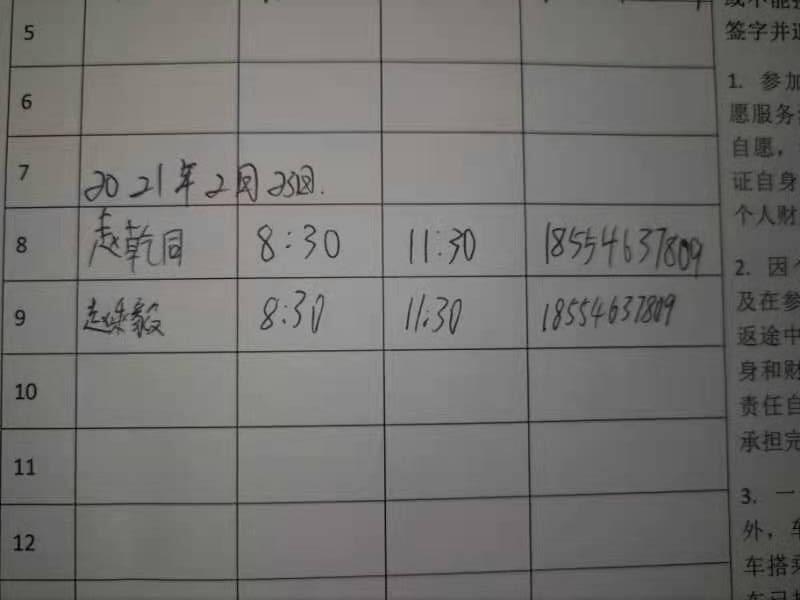 5
6
7 2021年2月25日.
8 赵乾同 8:30 11:30 18554637809
9 赵 毅 8:30 11:30 18554637809
10
11
12
签字并
1. 参加
愿服务
自愿，
证自身
个人财
2. 因个
及在参
返途中
身和财
责任自
承担完
3. 一
外，车
车搭乘